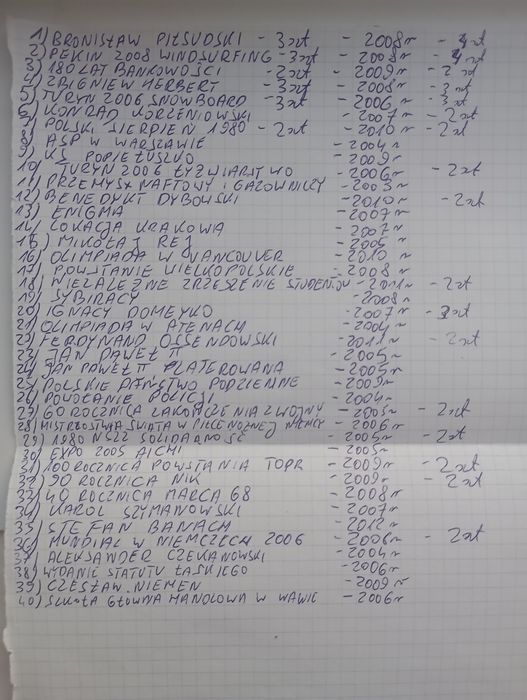 1) BRONISŁAW PIŁSUDSKI - 3szt - 2008r - 4szt
2) PEKIN 2008 WINDSURFING - 3szt - 2008r - 4szt
3) 180 LAT BANKOWOŚCI - 2szt - 2009r - 2szt
4) ZBIGNIEW HERBERT - 3szt - 2008r - 3szt
5) TURYN 2006 SNOWBOARD - 3szt - 2006r - 3szt
6) KONRAD KORZENIOWSKI - 2007r - 2szt
7) POLSKI SIERPIEŃ 1980 - 2szt - 2010r - 2szt
8) ASP W WARSZAWIE - 2004r
9) KS POPIEŁUSZKO - 2009r
10) TURYN 2006 ŁYŻWIARSTWO - 2006r - 2szt
11) PRZEMYSŁ NAFTOWY I GAZOWNICZY - 2003r
12) BENEDYKT DYBOWSKI - 2010r - 2szt
13) ENIGMA - 2007r
14) LOKACJA KRAKOWA - 2007r
15) MIKOŁAJ REJ - 2005r
16) OLIMPIADA W VANCOUVER - 2010r
17) POWSTANIE WIELKOPOLSKIE - 2008r
18) NIEZALEŻNE ZRZESZENIE STUDENTÓW - 2011r - 2szt
19) SYBIRACY - 2008r
20) IGNACY DOMEYKO - 2007r - szt
21) OLIMPIADA W ATENACH - 2004r
22) FERDYNAND OSSENDOWSKI - 2011r - 2szt
23) JAN PAWEŁ II - 2005r
24) JAN PAWEŁ II PLATEROWANA - 2005r
25) POLSKIE PAŃSTWO PODZIEMNE - 2009r
26) POWOŁANIE POLICJI - 2004r
27) 60 ROCZNICA ZAKOŃCZENIA WOJNY - 2005r - 2szt
28) MISTRZOSTWA ŚWIATA W PIŁCE NOŻNEJ NIEMCY - 2006r
29) 1980 NSZZ SOLIDARNOŚĆ - 2005r - 2szt
30) EXPO 2005 AICHI - 2005r
31) 100 ROCZNICA POWSTANIA TOPR - 2009r - 2szt
32) 90 ROCZNICA NIK - 2009r - 2szt
33) 40 ROCZNICA MARCA 68 - 2008r
34) KAROL SZYMANOWSKI - 2007r
35) STEFAN BANACH - 2012r
36) MUNDIAL W NIEMCZECH 2006 - 2006r - 2szt
37) ALEKSANDER CZEKANOWSKI - 2004r
38) WYDANIE STATUTU ŁASKIEGO - 2006r
39) CZESŁAW NIEMEN - 2009r
40) SZKOŁA GŁÓWNA HANDLOWA W WAWIE - 2006r